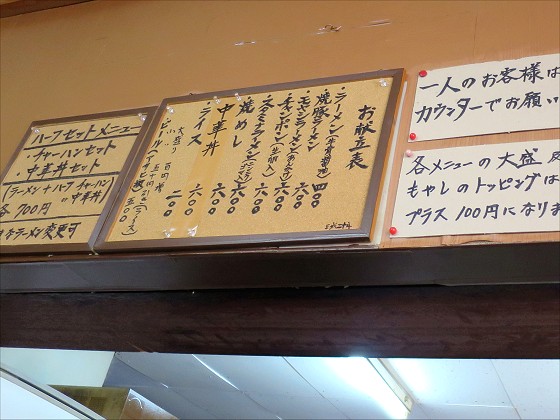 ハーフセットメニュー
・チャーハンセット
・中華丼セット
ラーメン+ハーフ チャーハン
の中華丼
各 700円
ラーメン変更可
お献立表
・ラーメン 四〇〇
・焼豚ラーメン 六〇〇
・モヤシラーメン 六〇〇
・チャンポン 六〇〇
・スタミナラーメン 六〇〇
・焼めし 六〇〇
・中華丼 六〇〇
・ライス 二〇〇
大盛り 百円増
・ビール 五〇〇
一人のお客様は
カウンターでお願い
各メニューの大盛及
もやしのトッピングは
プラス 100円になりま